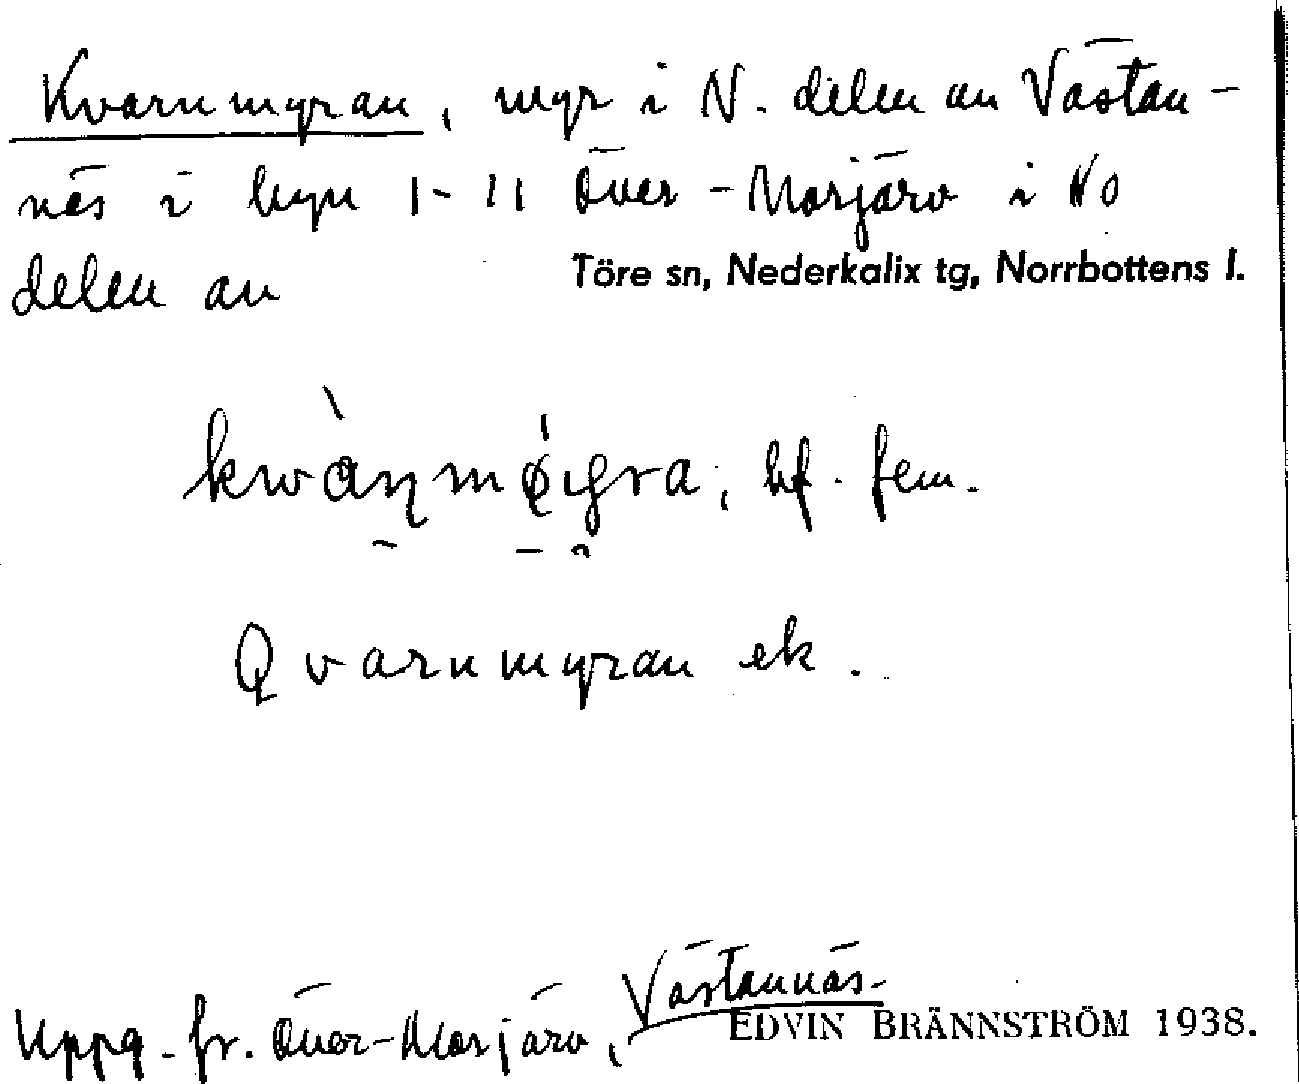 Kvarnmyran, myr i N. delen av Västan-
näs i byn 1-11 Över-Morjärv i NO
delen av Töre sn, Nederkalix tg, Norrbottens l.
bf. fem.
Qvarnmyran ek.
Västannäs.
Uppg. fr. Över-Morjärv, EDVIN BRÄNNSTRÖM 1938.